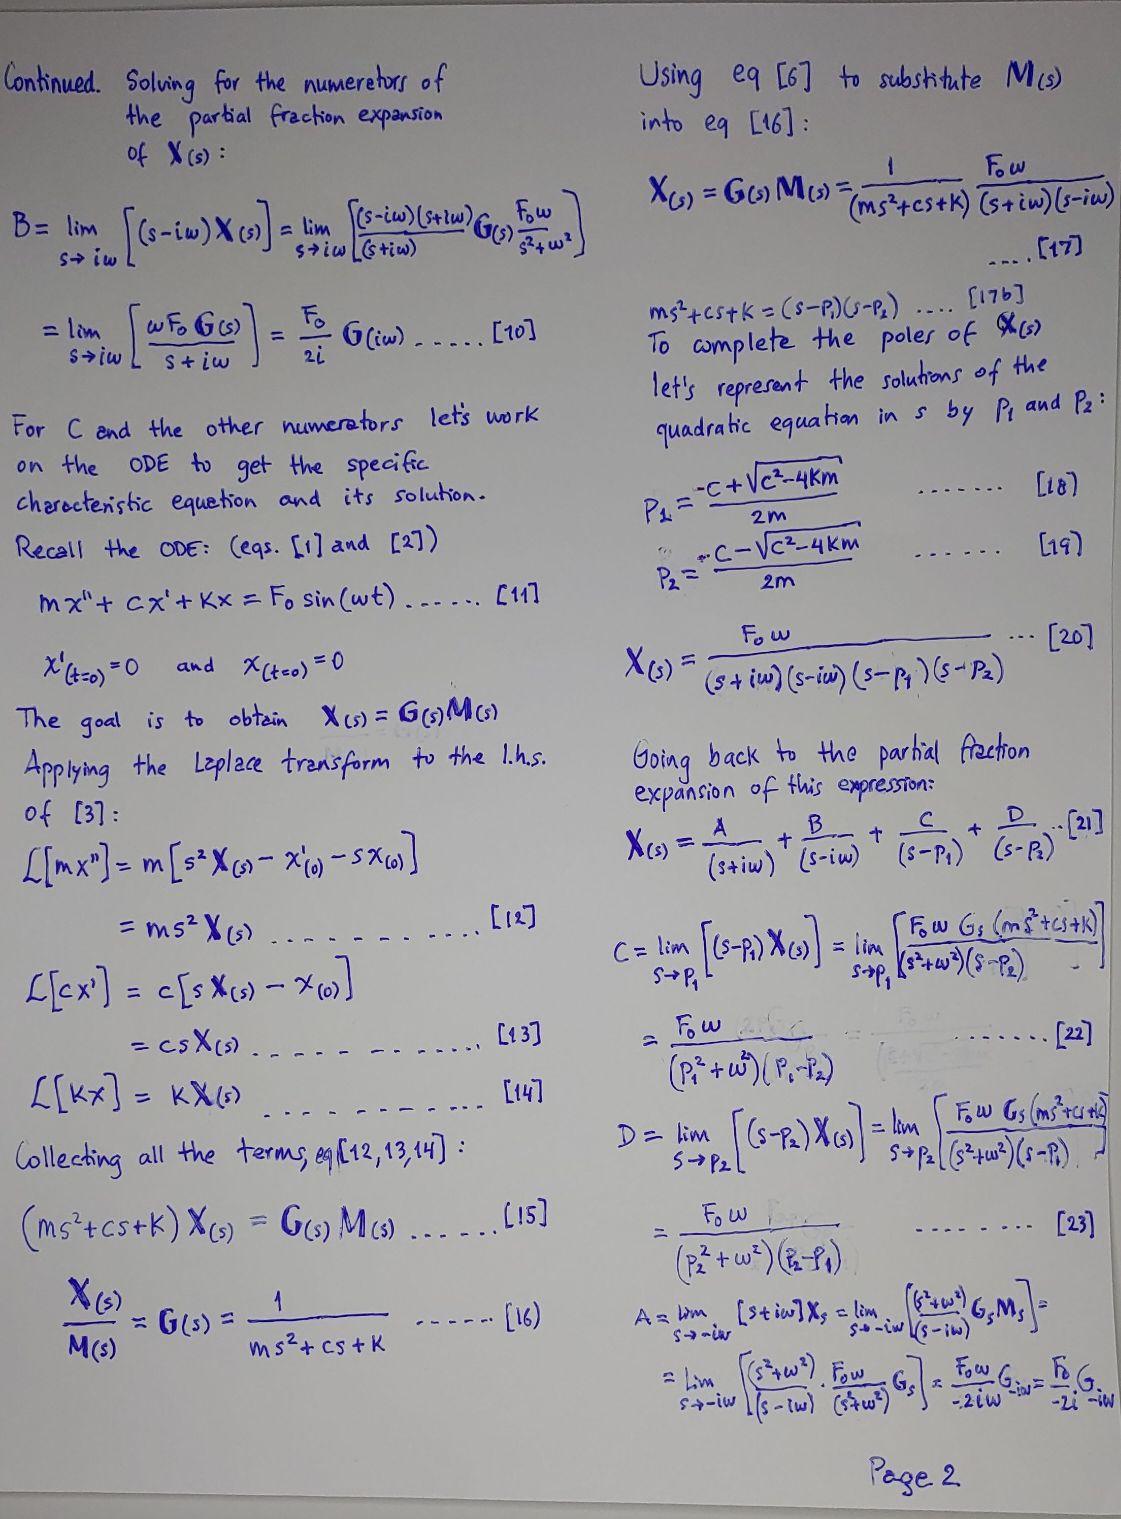 Continued. Solving for the numerators of
the partial fraction expansion
of X(s) :
B = lim s→iω [(s-iω) X(s)] = lim s→iω [(s-iω)(s+iω)/(s+iω) G(s) F₀ω/(s²+ω²)]
= lim s→iω [ωF₀ G(s)/(s+iω)] = F₀/2i G(iω) ...... [10]
For C and the other numerators let's work
on the ODE to get the specific
characteristic equation and its solution.
Recall the ODE: (eqs. [1] and [2])
mx'' + cx' + Kx = F₀ sin(ωt) ...... [11]
x'(t=0) = 0 and x(t=0) = 0
The goal is to obtain X(s) = G(s) M(s)
Applying the Laplace transform to the l.h.s.
of [3]:
L[mx''] = m[s² X(s) - x'(0) - sx(0)]
= ms² X(s) ........... [12]
L[cx'] = c[s X(s) - x(0)]
= cs X(s) ............ [13]
L[Kx] = K X(s) ............ [14]
Collecting all the terms, eq [12,13,14] :
(ms²+cs+K) X(s) = G(s) M(s) ...... [15]
X(s)/M(s) = G(s) = 1/(ms²+cs+K) ...... [16]
Using eq [6] to substitute M(s)
into eq [16]:
X(s) = G(s) M(s) = 1/(ms²+cs+K) F₀ω/((s+iω)(s-iω))
.... [17]
ms²+cs+K = (s-P₁)(s-P₂) .... [17b]
To complete the poles of X(s)
let's represent the solutions of the
quadratic equation in s by P₁ and P₂ :
P₁ = (-C+√(C²-4Km))/2m ....... [18]
P₂ = (-C-√(C²-4Km))/2m ...... [19]
X(s) = F₀ω/((s+iω)(s-iω)(s-P₁)(s-P₂)) ... [20]
Going back to the partial fraction
expansion of this expression:
X(s) = A/(s+iω) + B/(s-iω) + C/(s-P₁) + D/(s-P₂) .. [21]
C = lim s→P₁ [(s-P₁) X(s)] = lim s→P₁ [F₀ω Gs (ms²+cs+K)/((s²+ω²)(s-P₂))]
= F₀ω/((P₁²+ω²)(P₁-P₂)) ....... [22]
D = lim s→P₂ [(s-P₂) X(s)] = lim s→P₂ [F₀ω Gs (ms²+cs+K)/((s²+ω²)(s-P₁))]
= F₀ω/((P₂²+ω²)(P₂-P₁)) ........ [23]
A = lim s→-iω [s+iω] Xs = lim s→-iω [(s²+ω²)/(s-iω) Gs Ms] =
= lim s→-iω [(s²+ω²)/(s-iω) · F₀ω/(s²+ω²) Gs] = F₀ω/-2iω G-iω = F₀/-2i G-iω
Page 2